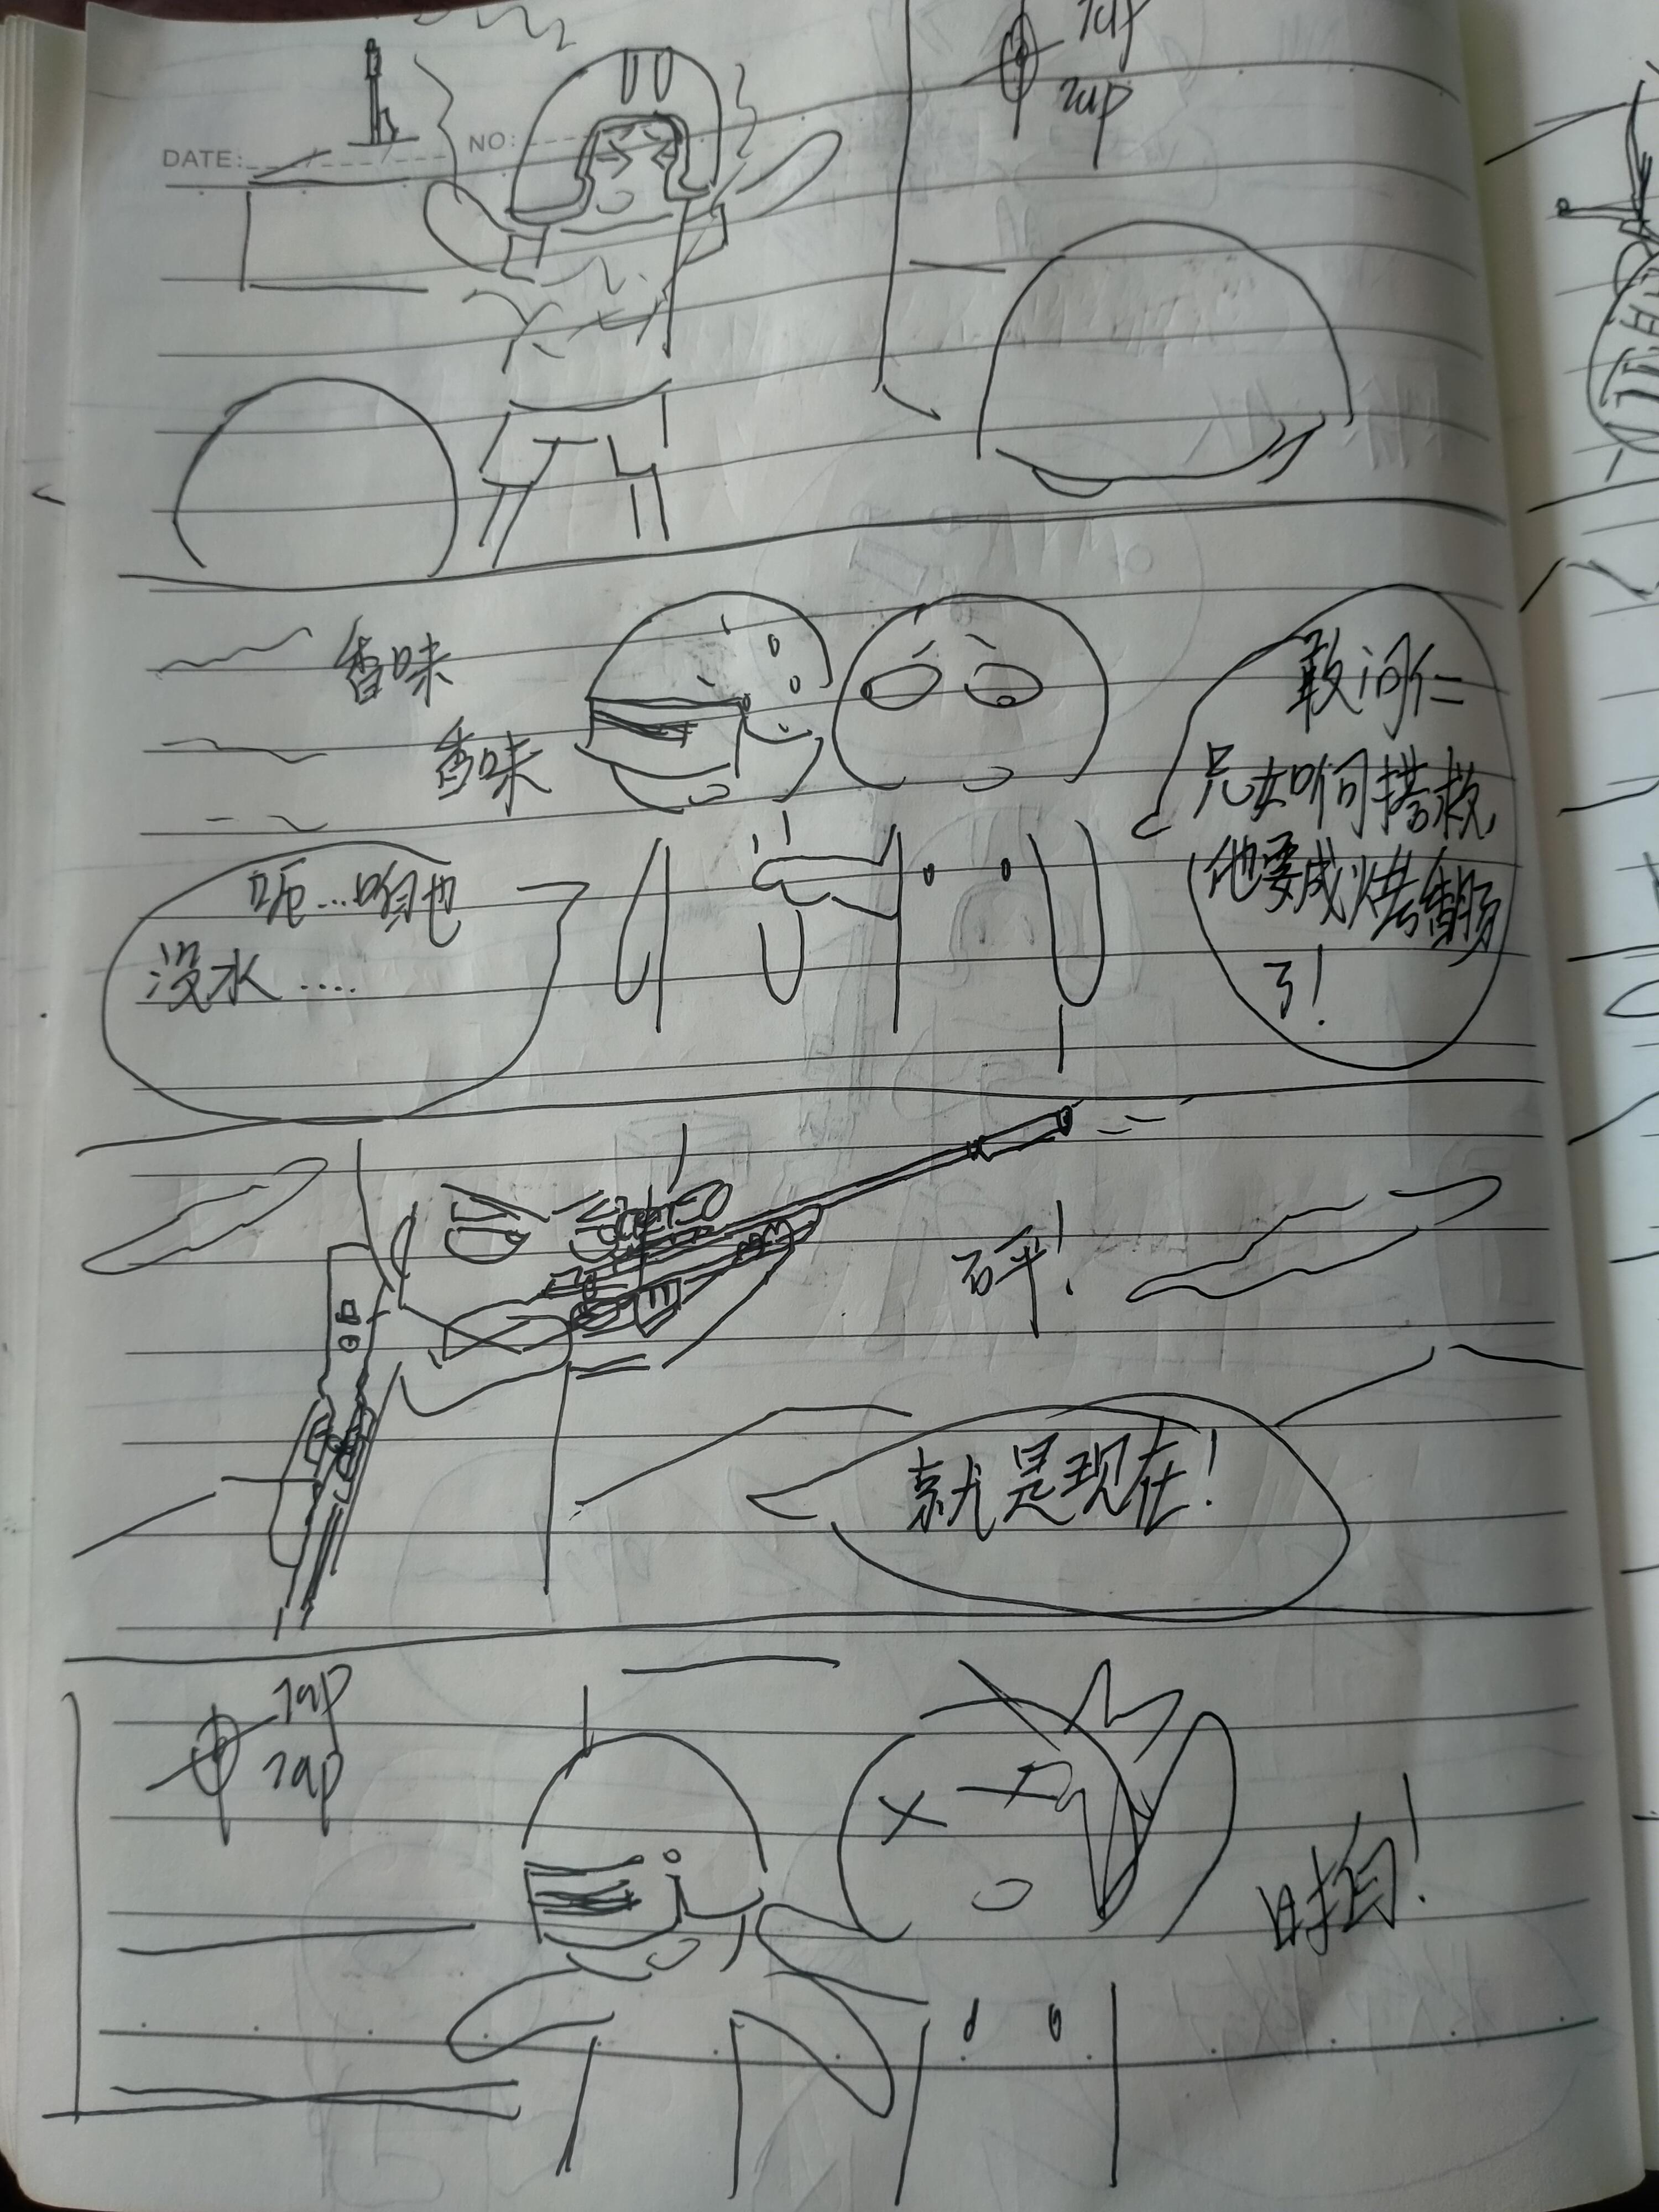 DATE:
NO:
1up
2up
香味
香味
敢问仁
兄如何搭救,
他要成烤香肠
了!
呃…咱也
没水….
砰!
就是现在!
1up
2up